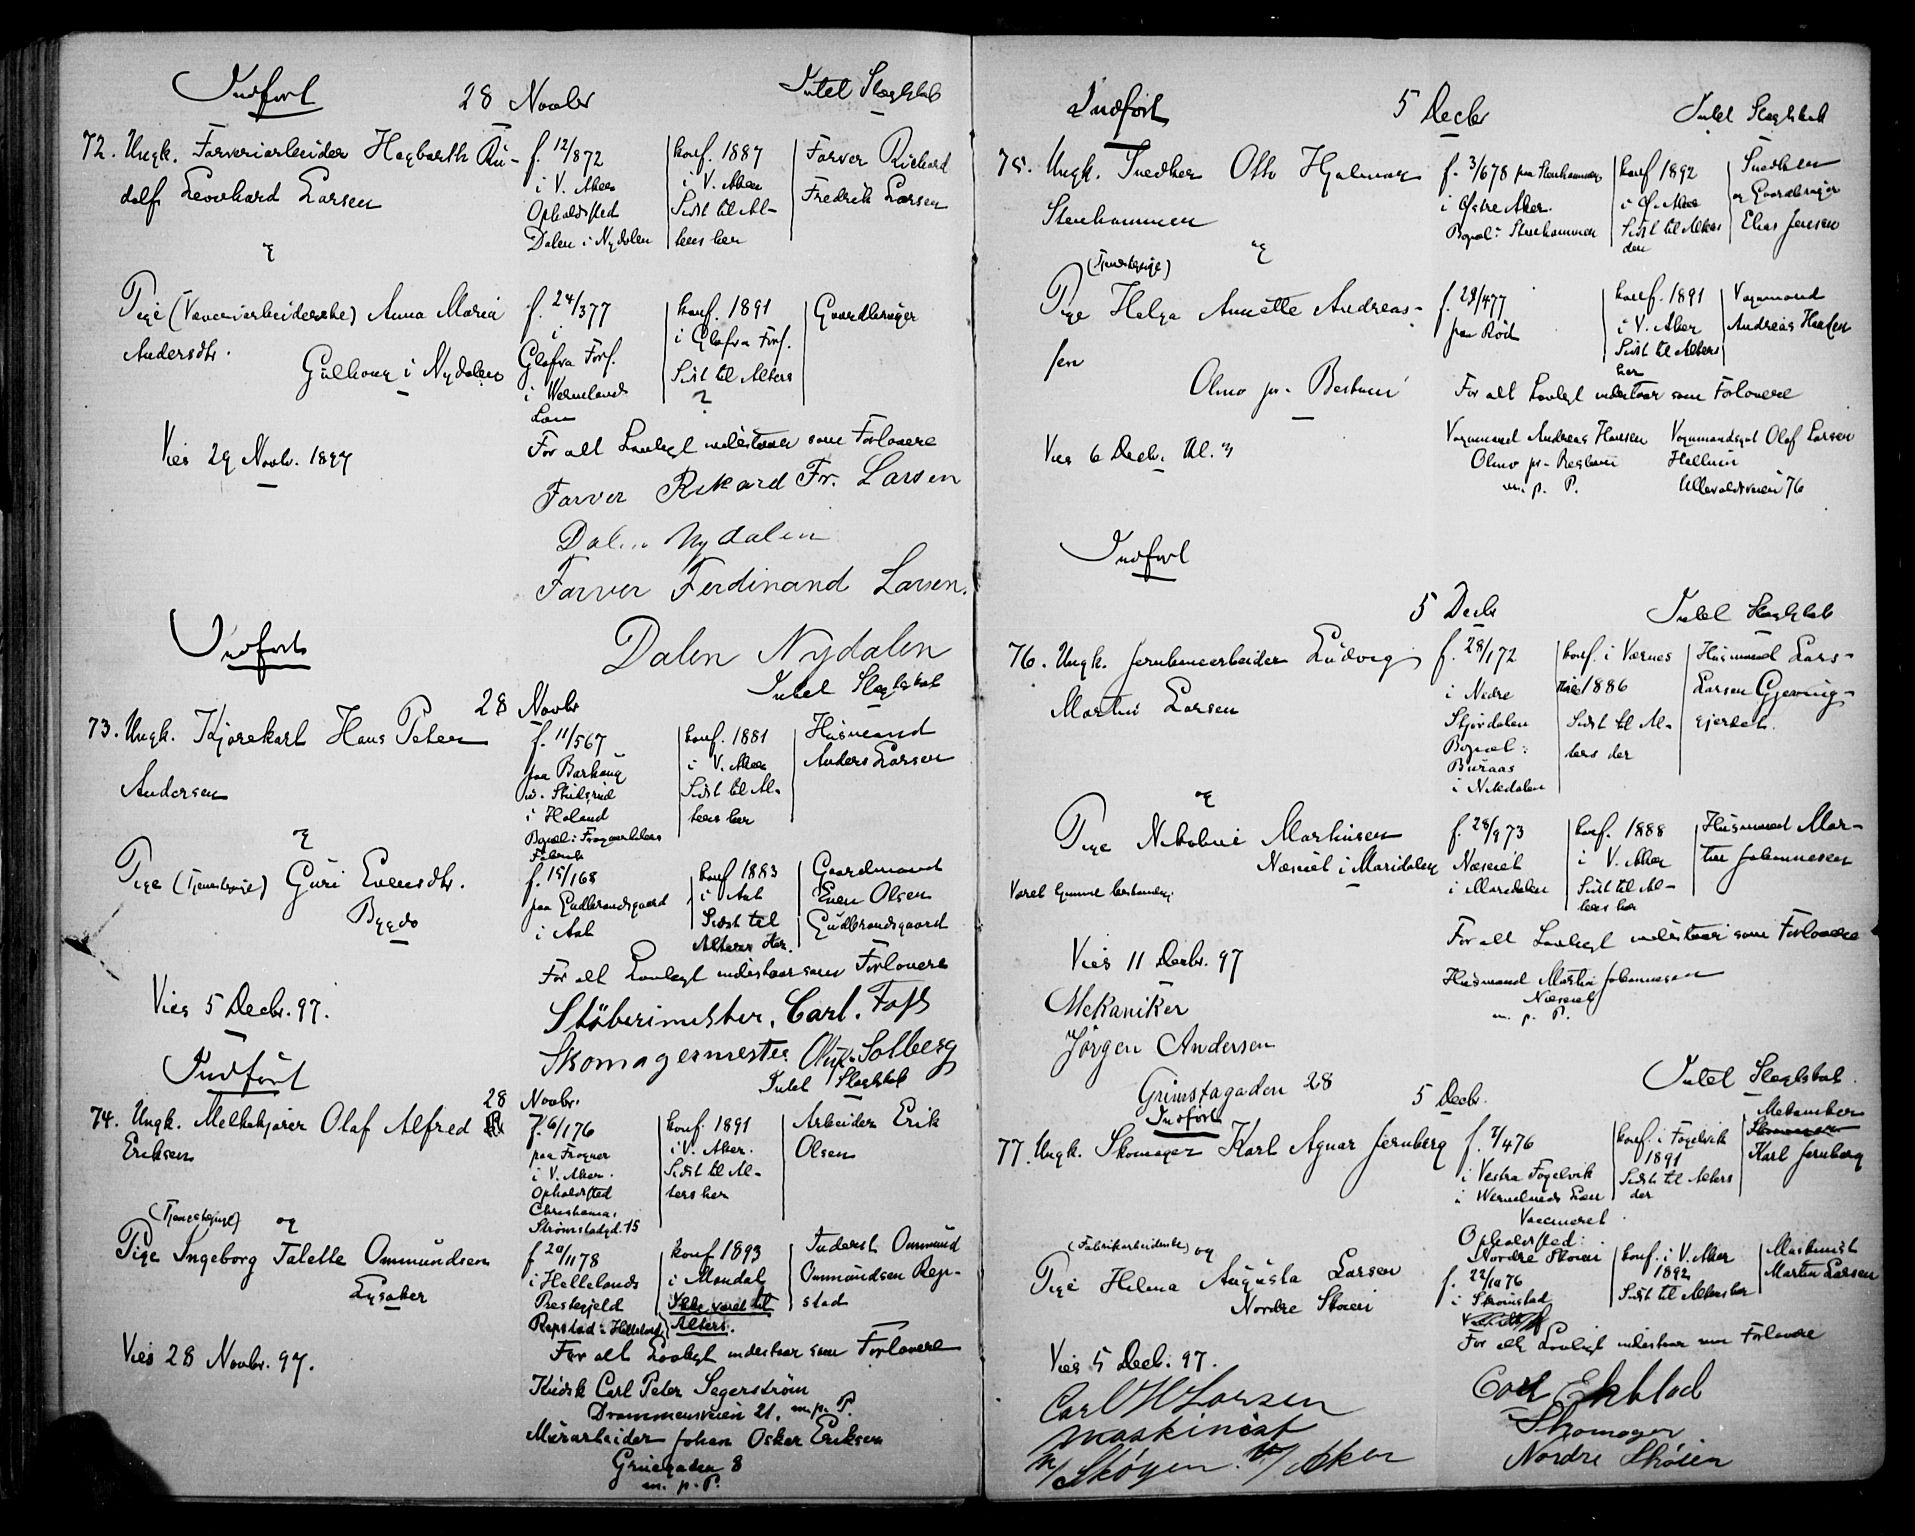 Indført
28 Novbr
Intet Slægtskab
72. Ungk. Farveriarbeider Hagbarth Ru-
dolf Leonhard Larsen
f. 12/872
i V. Aker
Opholdssted
Dalen i Nydalen
konf. 1887
i V. Aker
Sidst til Al-
ters her
Farver Richard
Fredrik Larsen
og
Pige (Væveriarbeiderske) Anna Maria
Andersdtr.
Gulhaug i Nydalen
f. 24/377
i
Glafva Fors.
i Wermlands
Län
konf. 1891
i Glafva Fors.
Sidst til Alters
?
Gaardbruger
Viet 29 Novbr. 1897
For alt Lovligt indestaar som Forlovere
Farver Rikard Fr. Larsen
Dalen Nydalen
Farver Ferdinand Larsen.
Dalen Nydalen
Indført
28 Novbr
Intet Slægtskab
73. Ungk. Kjørekarl Hans Peter
Andersen
f. 11/567
paa Barhaug
i Høland
Bopæl: Frognerkilens
Fabrik
konf. 1881
i V. Aker
Sidst til Al-
ters her
Husmand
Anders Larsen
og
Pige (Tjenestepige) Guri Evensdtr.
Bygdø
f. 15/168
paa Gudbrandsgaard
i Aal
konf 1883
i Aal
Sidst til
Alters her.
Gaardmand
Even Olsen
Gudbrandsgaard
Viet 5 Decbr. 97.
For alt Lovligt indestaar som Forlovere
Støberimester, Carl. Foss
Skomagermester Solberg
Indført
28 Novbr.
Intet Slægtskab
74. Ungk. Melkekjører Olaf Alfred
Eriksen
f. 6/176
paa Frogner
i V. Aker.
Opholdssted
Christiania,
Strømstadgd. 15
konf. 1891
i V. Aker.
Sidst til Al-
ters her
Arbeider Erik
Olsen
(Tjenestepige) og
Pige Ingeborg Talette Ommundsen
Lysaker
f 20/1178
i Hellelands
Prestegjeld
Repstad i Helleland
konf 1893
i Mandal
Ikke været til
Alters.
Inderst Ommund
Ommundsen Rep-
stad
Viet 28 Novbr. 97.
For alt Lovligt indestaar som Forlovere
Kudsk Carl Peter Segerström
Drammensveien 21. m. p. P.
Murarbeider Johan Oskar Eriksen
Gruegaden 8
m. p. P.
Indført
5 Decbr
Intet Slægtskab
75. Ungk. Snedker Otto Hjalmar
Stenhammer
f. 3/678 paa Stenhammer
i Østre Aker.
Bopæl: Stenhammer
konf 1892
i Ø. Aker
Sidst til Alters
der
Snedker
og Gaardbruger
Elias Jensen
og
(Tjenestepige)
Pige Helga Annette Andreas-
sen
Olmo pr. Bestum
f. 29/477
paa Röd
konf. 1891
i V. Aker
Sidst til Alters
her
Vognmand
Andreas Hansen
Viet 6 Decbr. Kl. 3
For alt Lovligt indestaar som Forlovere
Vognmand Andreas Hansen
Olmo pr. Bestum
m. p. P.
Vognmandsgut Olaf Larsen
Ullevoldsveien 76
Indført
5 Decbr
Intet Slægtskab
76. Ungk. Jernbanearbeider Ludvig
Martin Larsen
f. 28/172
i Nedre
Stjørdalen
Bopæl:
Buraas
i Nitedalen
konf. i Værnes
1886
Sidst til Al-
ters der
Husmand Lars
Larsen Gjeving-
ejerdet.
og
Pige Nikoline Martinsen
Næsset i Maridalen
f. 28/973
Næsset
i Maridalen
konf. 1888
i V. Aker
Sidst til Al-
ters her
Husmand Mar-
tin Johannesen
For alt Lovligt indestaar som Forlovere
Viet 11 Decbr. 97
Husmand Martin Johannesen
Næsset
m. p. P.
Mekaniker
Jørgen Andersen
Grimstagaden 28
Indført
5 Decbr.
Intet Slægtskab
77. Ungk. Skomager Karl Agnar Jernberg
f. 7/476
i Vestra Fogelvik
i Wermelands Län
Vaccineret
Opholdssted:
Nordre Skøien
konf. i Fogelvik
1891
Sidst til Alters
der
Mekaniker
Karl Jernberg
(Fabrikarbeiderske) og
Pige Helma Augusta Larsen
Nordre Skøien
f. 22/1076
i Strømstad
konf. i V. Aker
1892
Sidst til Alters her
Maskinist
Martin Larsen
Viet 5 Decbr. 97.
For alt Lovligt indestaar som Forlovere
Carl M Larsen
maskinist
N/ Skøyen V/ Aker
Carl Ekblad
Skomager
Nordre Skøien